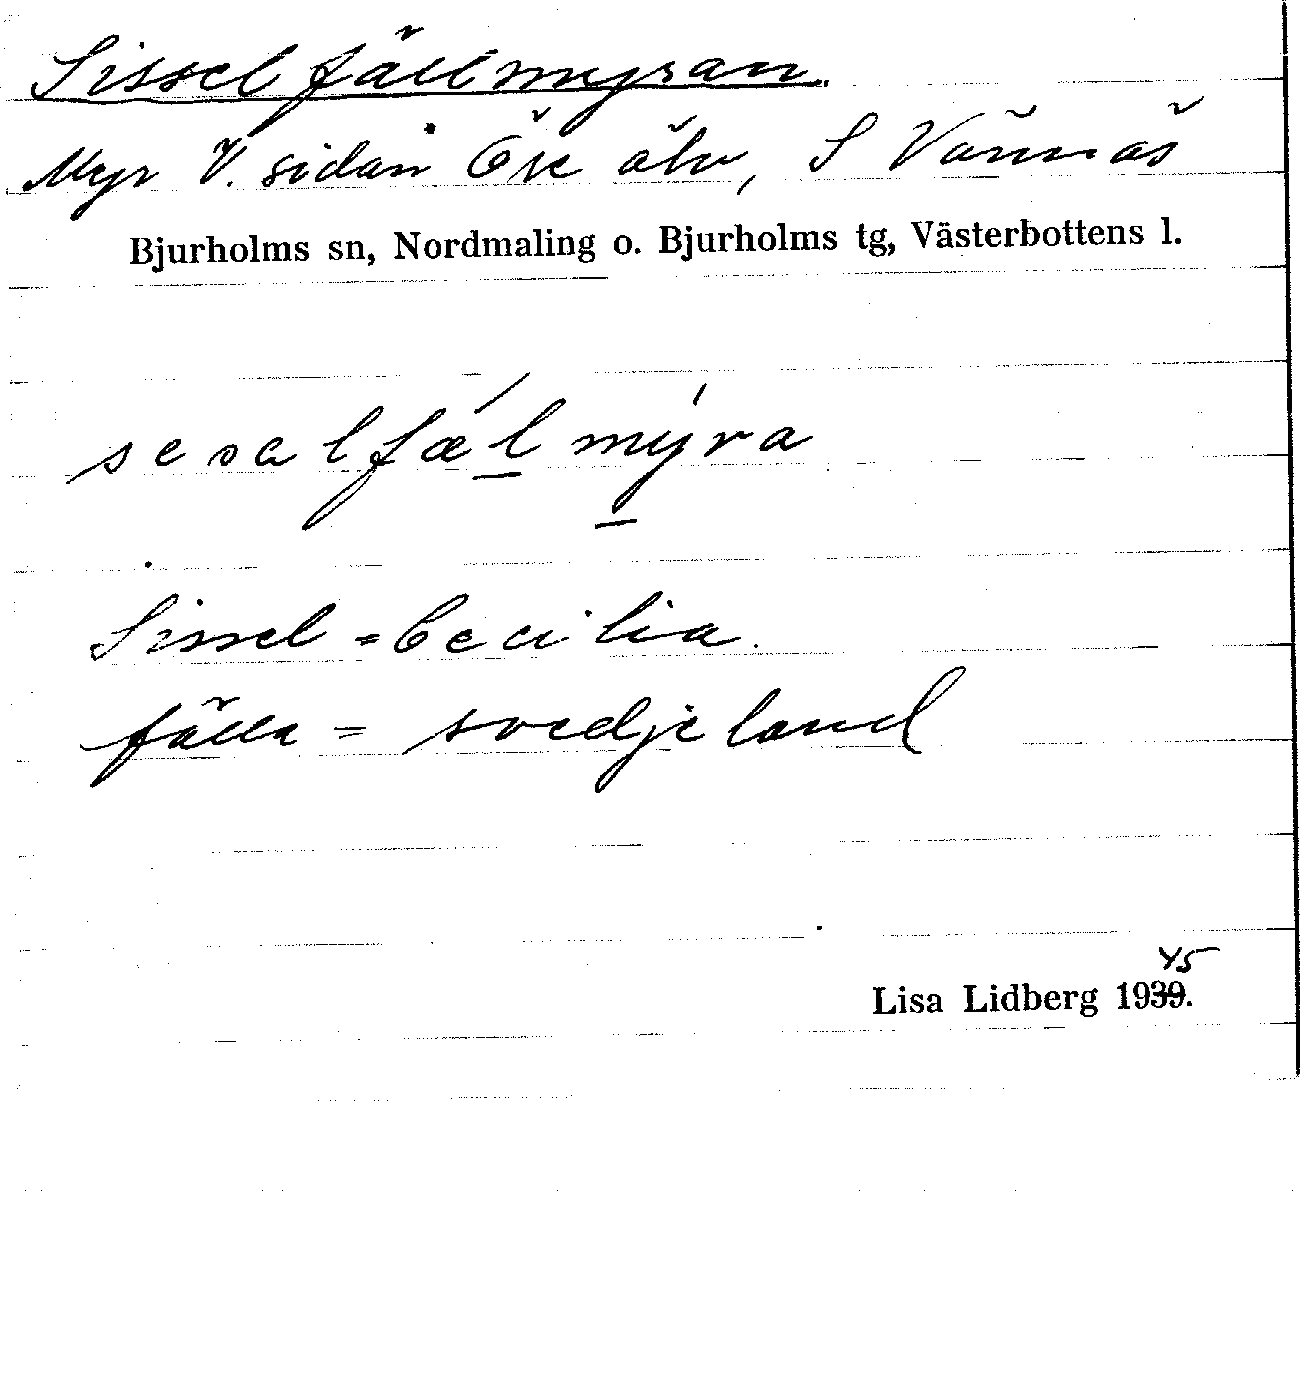 Sisselfällmyran.
Myr V. sidan Öre älv, S Vännäs
Bjurholms sn, Nordmaling o. Bjurholms tg, Västerbottens l.
sesalfælmyra
Sissel = Cecilia.
fälla = svedjeland
45
Lisa Lidberg 1939.